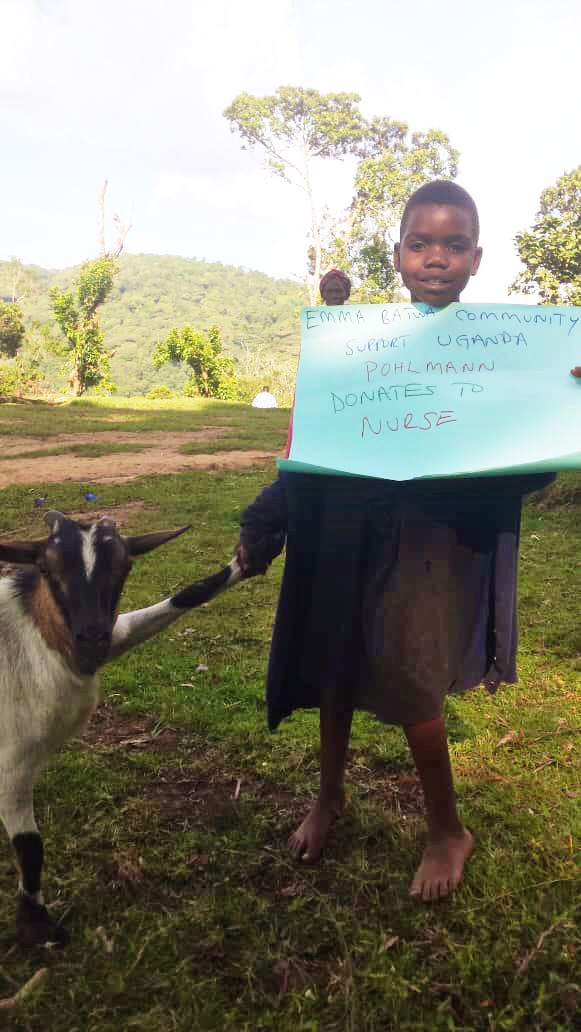 EMMA BATWA COMMUNITY
SUPORT UGANDA
POHLMANN
DONATES TO
NURSE